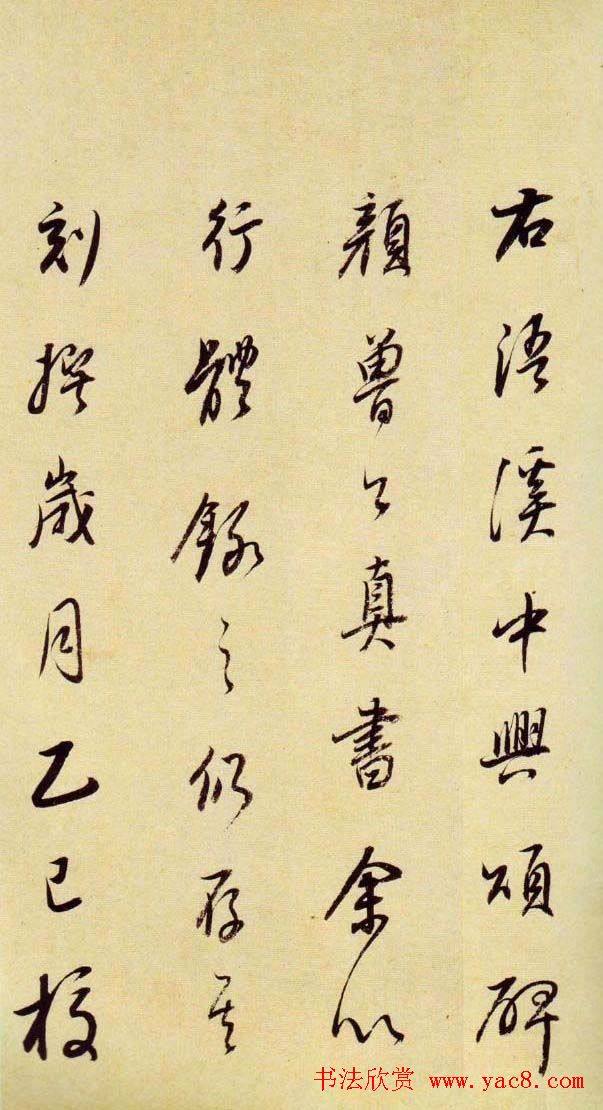 右浯溪中興頌碑
顏魯公真書余以
行體錄之仍存其
刻撰歲月乙巳校
书法欣赏 www.yac8.com